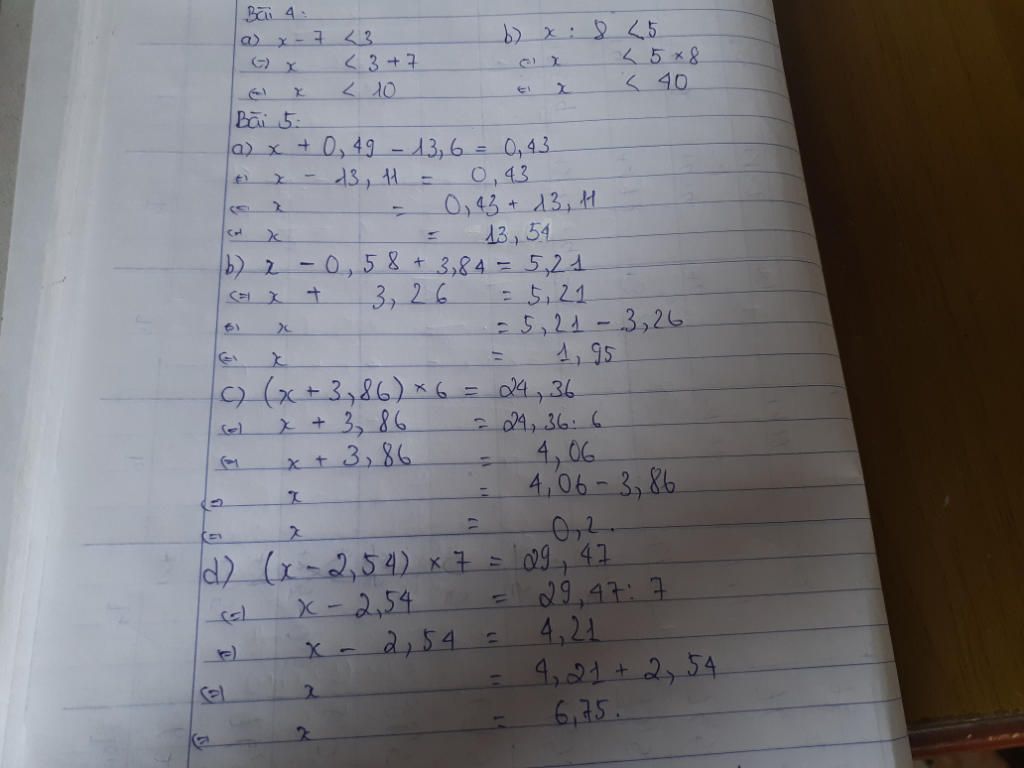 Bài 4:
a) x - 7 < 3 b) x : 8 < 5
(=) x < 3 + 7 (=) x < 5 × 8
(=) x < 10 (=) x < 40
Bài 5:
a) x + 0,49 - 13,6 = 0,43
(=) x - 13,11 = 0,43
(=) x = 0,43 + 13,11
(=) x = 13,54
b) x - 0,58 + 3,84 = 5,21
(=) x + 3,26 = 5,21
(=) x = 5,21 - 3,26
(=) x = 1,95
c) (x + 3,86) × 6 = 24,36
(=) x + 3,86 = 24,36 : 6
(=) x + 3,86 = 4,06
(=) x = 4,06 - 3,86
(=) x = 0,2.
d) (x - 2,54) × 7 = 29,47
(=) x - 2,54 = 29,47 : 7
(=) x - 2,54 = 4,21
(=) x = 4,21 + 2,54
(=) x = 6,75.